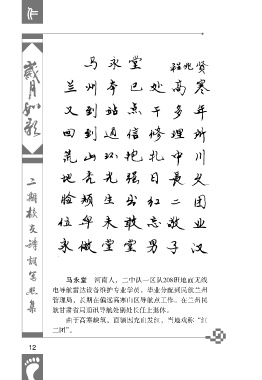 岁月如歌
二期校友诗词笔照集
马永堂
程兆贤
兰州本已处高寒
又到站点干多年
回到通信修理所
荒山环抱扎中川
地无光强日最久
脸颊生出红二团
位卑未敢忘敬业
永做堂堂男子汉
马永堂 河南人，二中队一区队208班地面无线
电导航雷达设备维护专业学员。毕业分配到民航兰州
管理局，长期在偏远高寒山区导航点工作。在兰州民
航甘肃省局通讯导航处副处长任上退休。
由于高寒缺氧，面颊因充血发红，当地戏称“红
二团”。
12